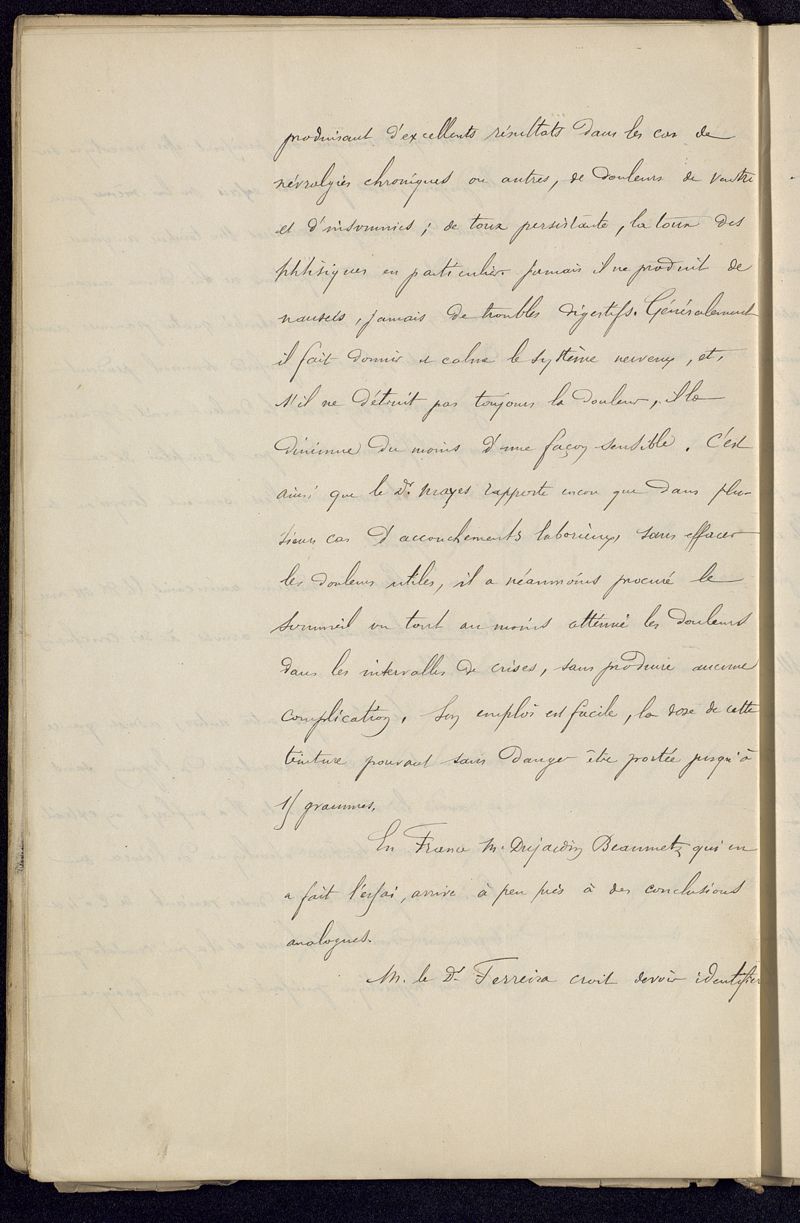 produisant d'excellents résultats dans les cas de
névralgies chroniques ou autres, de douleurs de ventre
et d'insomnies ; de toux persistante, la toux des
phtisiques en particulier jamais il ne produit de
nausées, jamais de troubles digestifs. Généralement
il fait dormir et calme le système nerveux, et,
s'il ne détruit pas toujours la douleur, il la
diminue du moins d'une façon sensible. C'est
ainsi que le Dr. Mayes rapporte encore que dans plu-
sieurs cas d'accouchements laborieux, sans effacer
les douleurs utiles, il a néanmoins procuré le
sommeil ou tout au moins atténué les douleurs
dans les intervalles de crises, sans produire aucune
complication. Son emploi est facile, la dose de cette
teinture pouvant sans danger être portée jusqu'à
grammes.
En France M. Dujardin Beaumetz qui en
a fait l'essai, arrive à peu près à des conclusions
analogues.
M. le Dr Ferreira croit devoir identifier